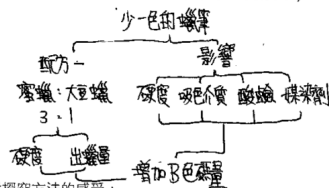 少一色的蠟筆
配方一 影響
蜜蠟:大豆蠟 硬度 吸色介質 酸鹼 媒染劑
3:1
硬度 出蠟量 增加B色碼量
探究方法的感受: